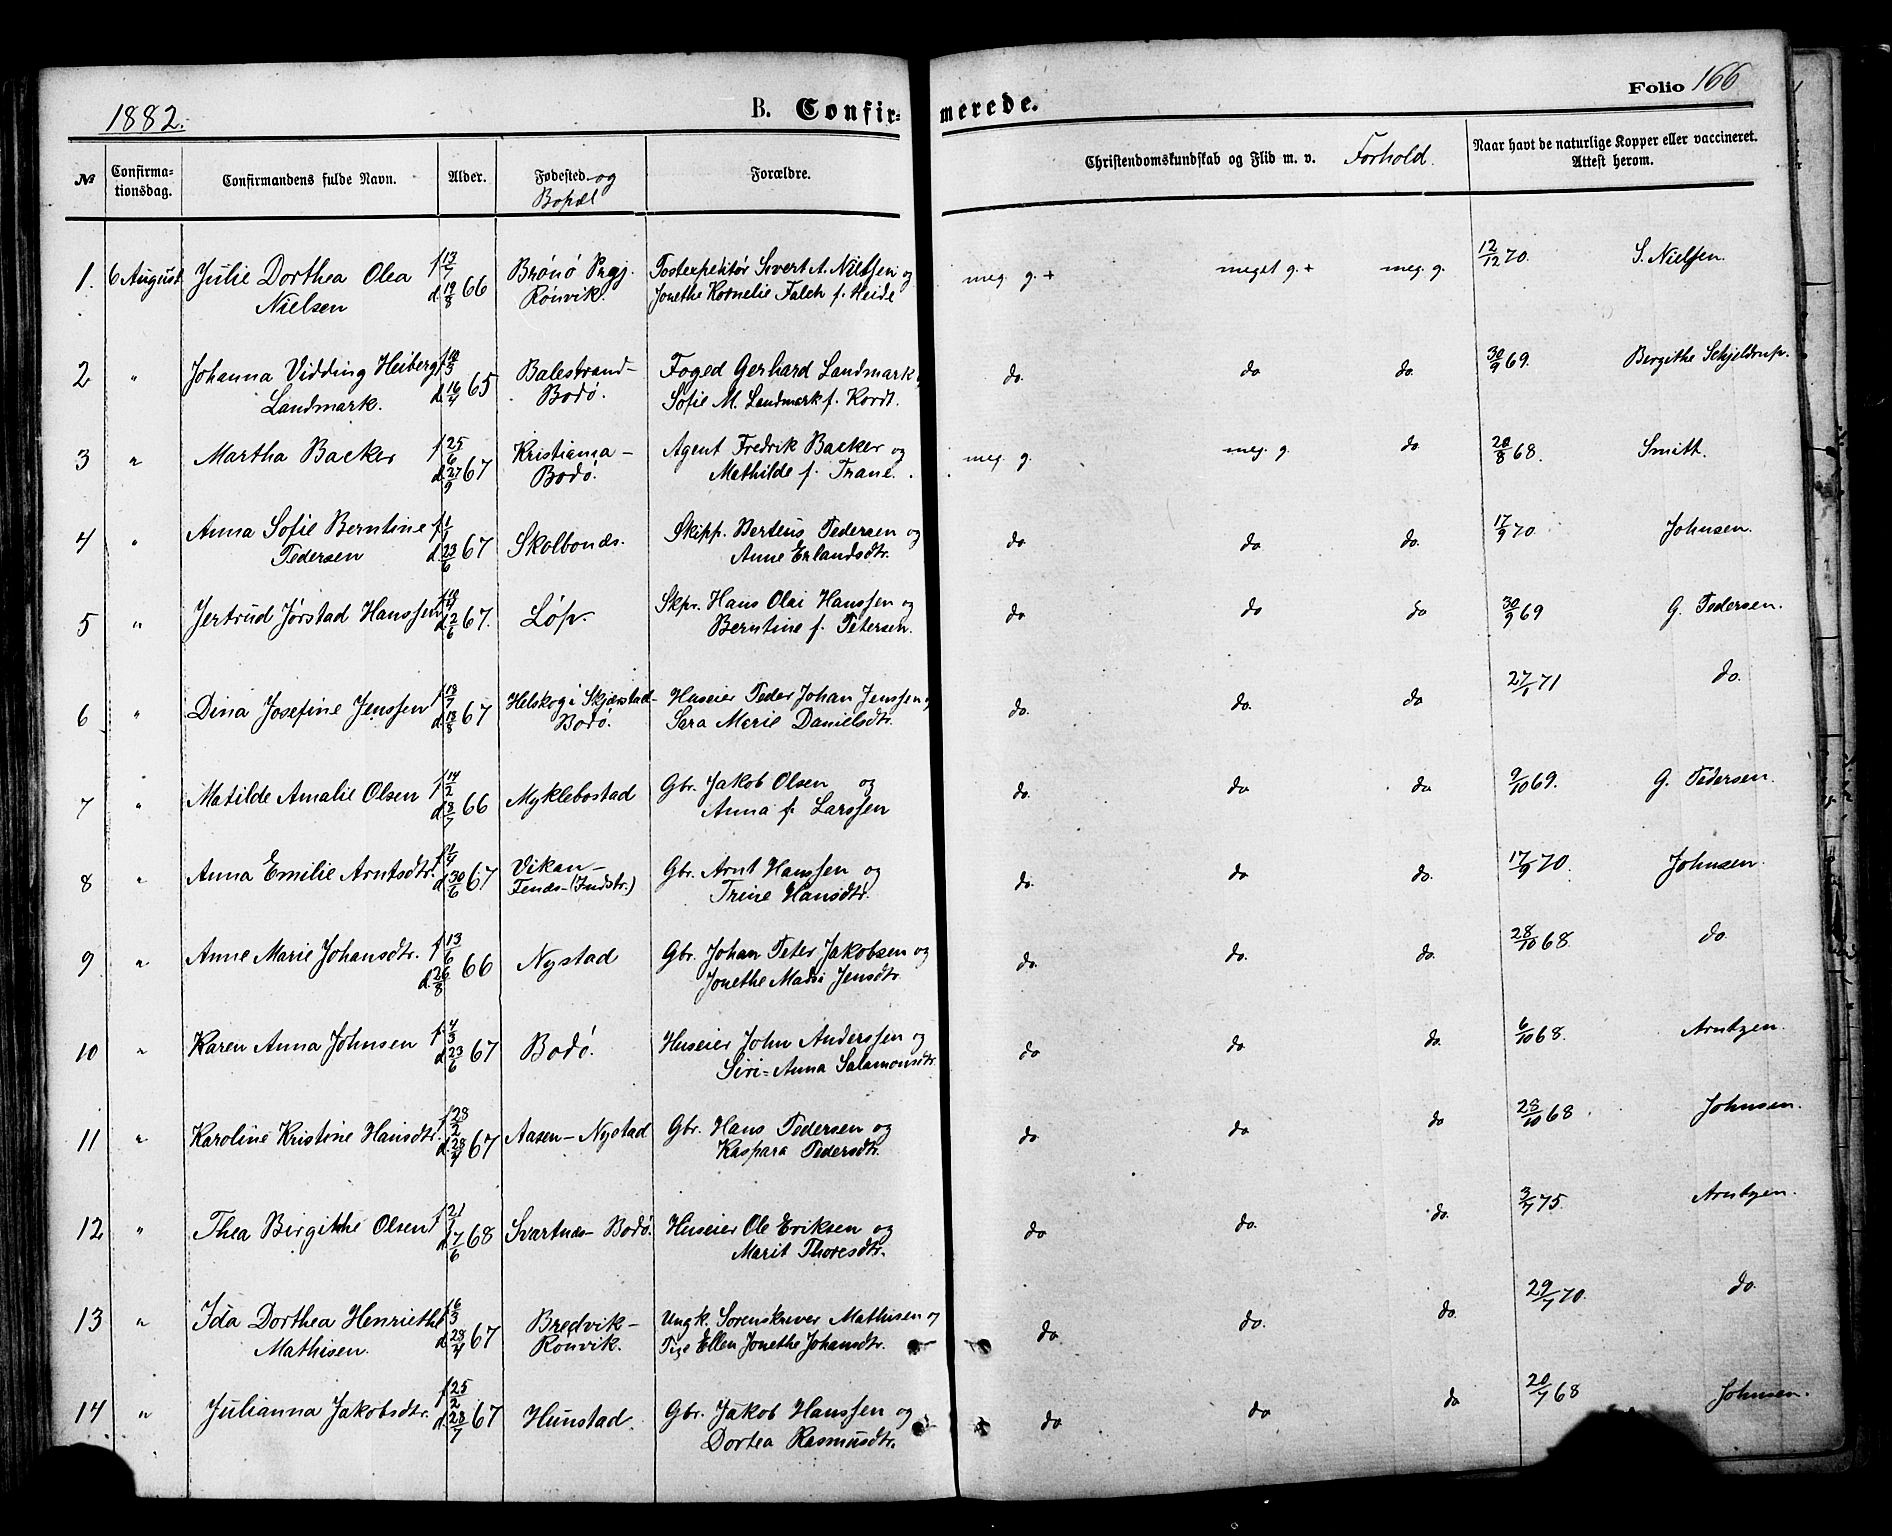 1882.
B. Confir-
merede.
Folio 166
№
Confirma-
tionsdag.
Confirmandens fulde Navn.
Alder.
Fødested og
Bopæl
Forældre.
Christendomskundskab og Flid m. v. Forhold.
Naar havt de naturlige Kopper eller vaccineret.
Attest herom.
1. 6 August Julie Dorthea Olea f 13/7 Brønø Prgj. Postexpeditør Sivert A. Nielsen og meg. g. + meget g. + meg. g. 12/12 70. S. Nielsen.
Nielsen d. 19/8 66 Rønvik. Jonethe Kornelie Falch f. Heide
2 " Johanna Vidding Heiberg f Balestrand- Foged Gerhard Landmark do. do do. 30/9 69. Birgithe Schjeldrup.
Landmark. d. 16/4 65 Bodø. Sofie M. Landmark f. Kordt.
3 " Martha Backer f 25/6 Kristiania- Agent Fredrik Backer og meg. g. meg. g. do 20/8 68. Smith.
d. 27/9 67 Bodø. Mathilde f. Trane.
4 " Anna Sofie Berntine f 1/1 Skolbonæs. Skipp. Berteus Pedersen og do do do. 17/9 70. Johnsen.
Pedersen d. 23/6 67 Anne Erlandsdtr.
5 " Jertrud Jørstad Hanssen f Løp. Skpr. Hans Olai Hanssen og do do do 30/9 69 G. Pedersen.
d. 2/6 67. Berntine f. Petersen.
6 " Dina Josefine Jenssen f 18/7 Helskog i Skjærstad- Huseier Peder Johan Jenssen og do. do. do 27/1 71 do.
d. 18/8 67 Bodø. Sara Marie Danielsdtr.
7 " Matilde Amalie Olsen f 14/2 Myklebostad Gbr. Jakob Olsen og do. do do 9/10 69. G. Pedersen.
d. 8/7 66 Anna f. Larssen
8 " Anna Emilie Arntsdtr. f 11/4 Vikan- Gbr. Arnt Hanssen og do. do do. 17/9 70. Johnsen.
d 30/6 67 Fenæs-(Indstr.) Trine Hansdtr.
9 " Anne Marie Johansdtr. f 13/6 Nystad Gbr. Johan Peter Jakobsen og do. do. do. 28/10 68. do.
d. 26/8 66 Jonethe Jensdtr.
10 " Karen Anna Johnsen f. 4/3 Bodø. Huseier John Anderssen og do do. do. 6/10 68. Arntzen.
d. 23/6 67 Siri-Anna Salamonsdtr.
11 " Karoline Kristine Hansdtr. f 28/2 Aasen-Nystad Gbr. Hans Pedersen og do do do 28/10 68. Johnsen.
d. 28/4 67 Kaspara Pedersdtr.
12 " Thea Birgithe Olsen f 21/1 Svartnæs-Bodø. Huseier Ole Eriksen og do do. do. 3/7 75. Arntzen.
d. 7/6 68 Marit Thoresdtr.
13 " Ida Dorthea Henriethe f 16/3 Bredvik- Ungk. Sorenskriver Mathisen og do. do. do. 29/7 70. do.
Mathisen. d. 28/4 67 Rønvik. Pige Ellen Jonethe Johansdtr.
14 " Julianna Jakobsdtr. f 25/2 Hunstad. Gbr. Jakob Hanssen og do do do 20/7 68 Johnsen.
d. 28/7 67 Dortea Rasmusdtr.